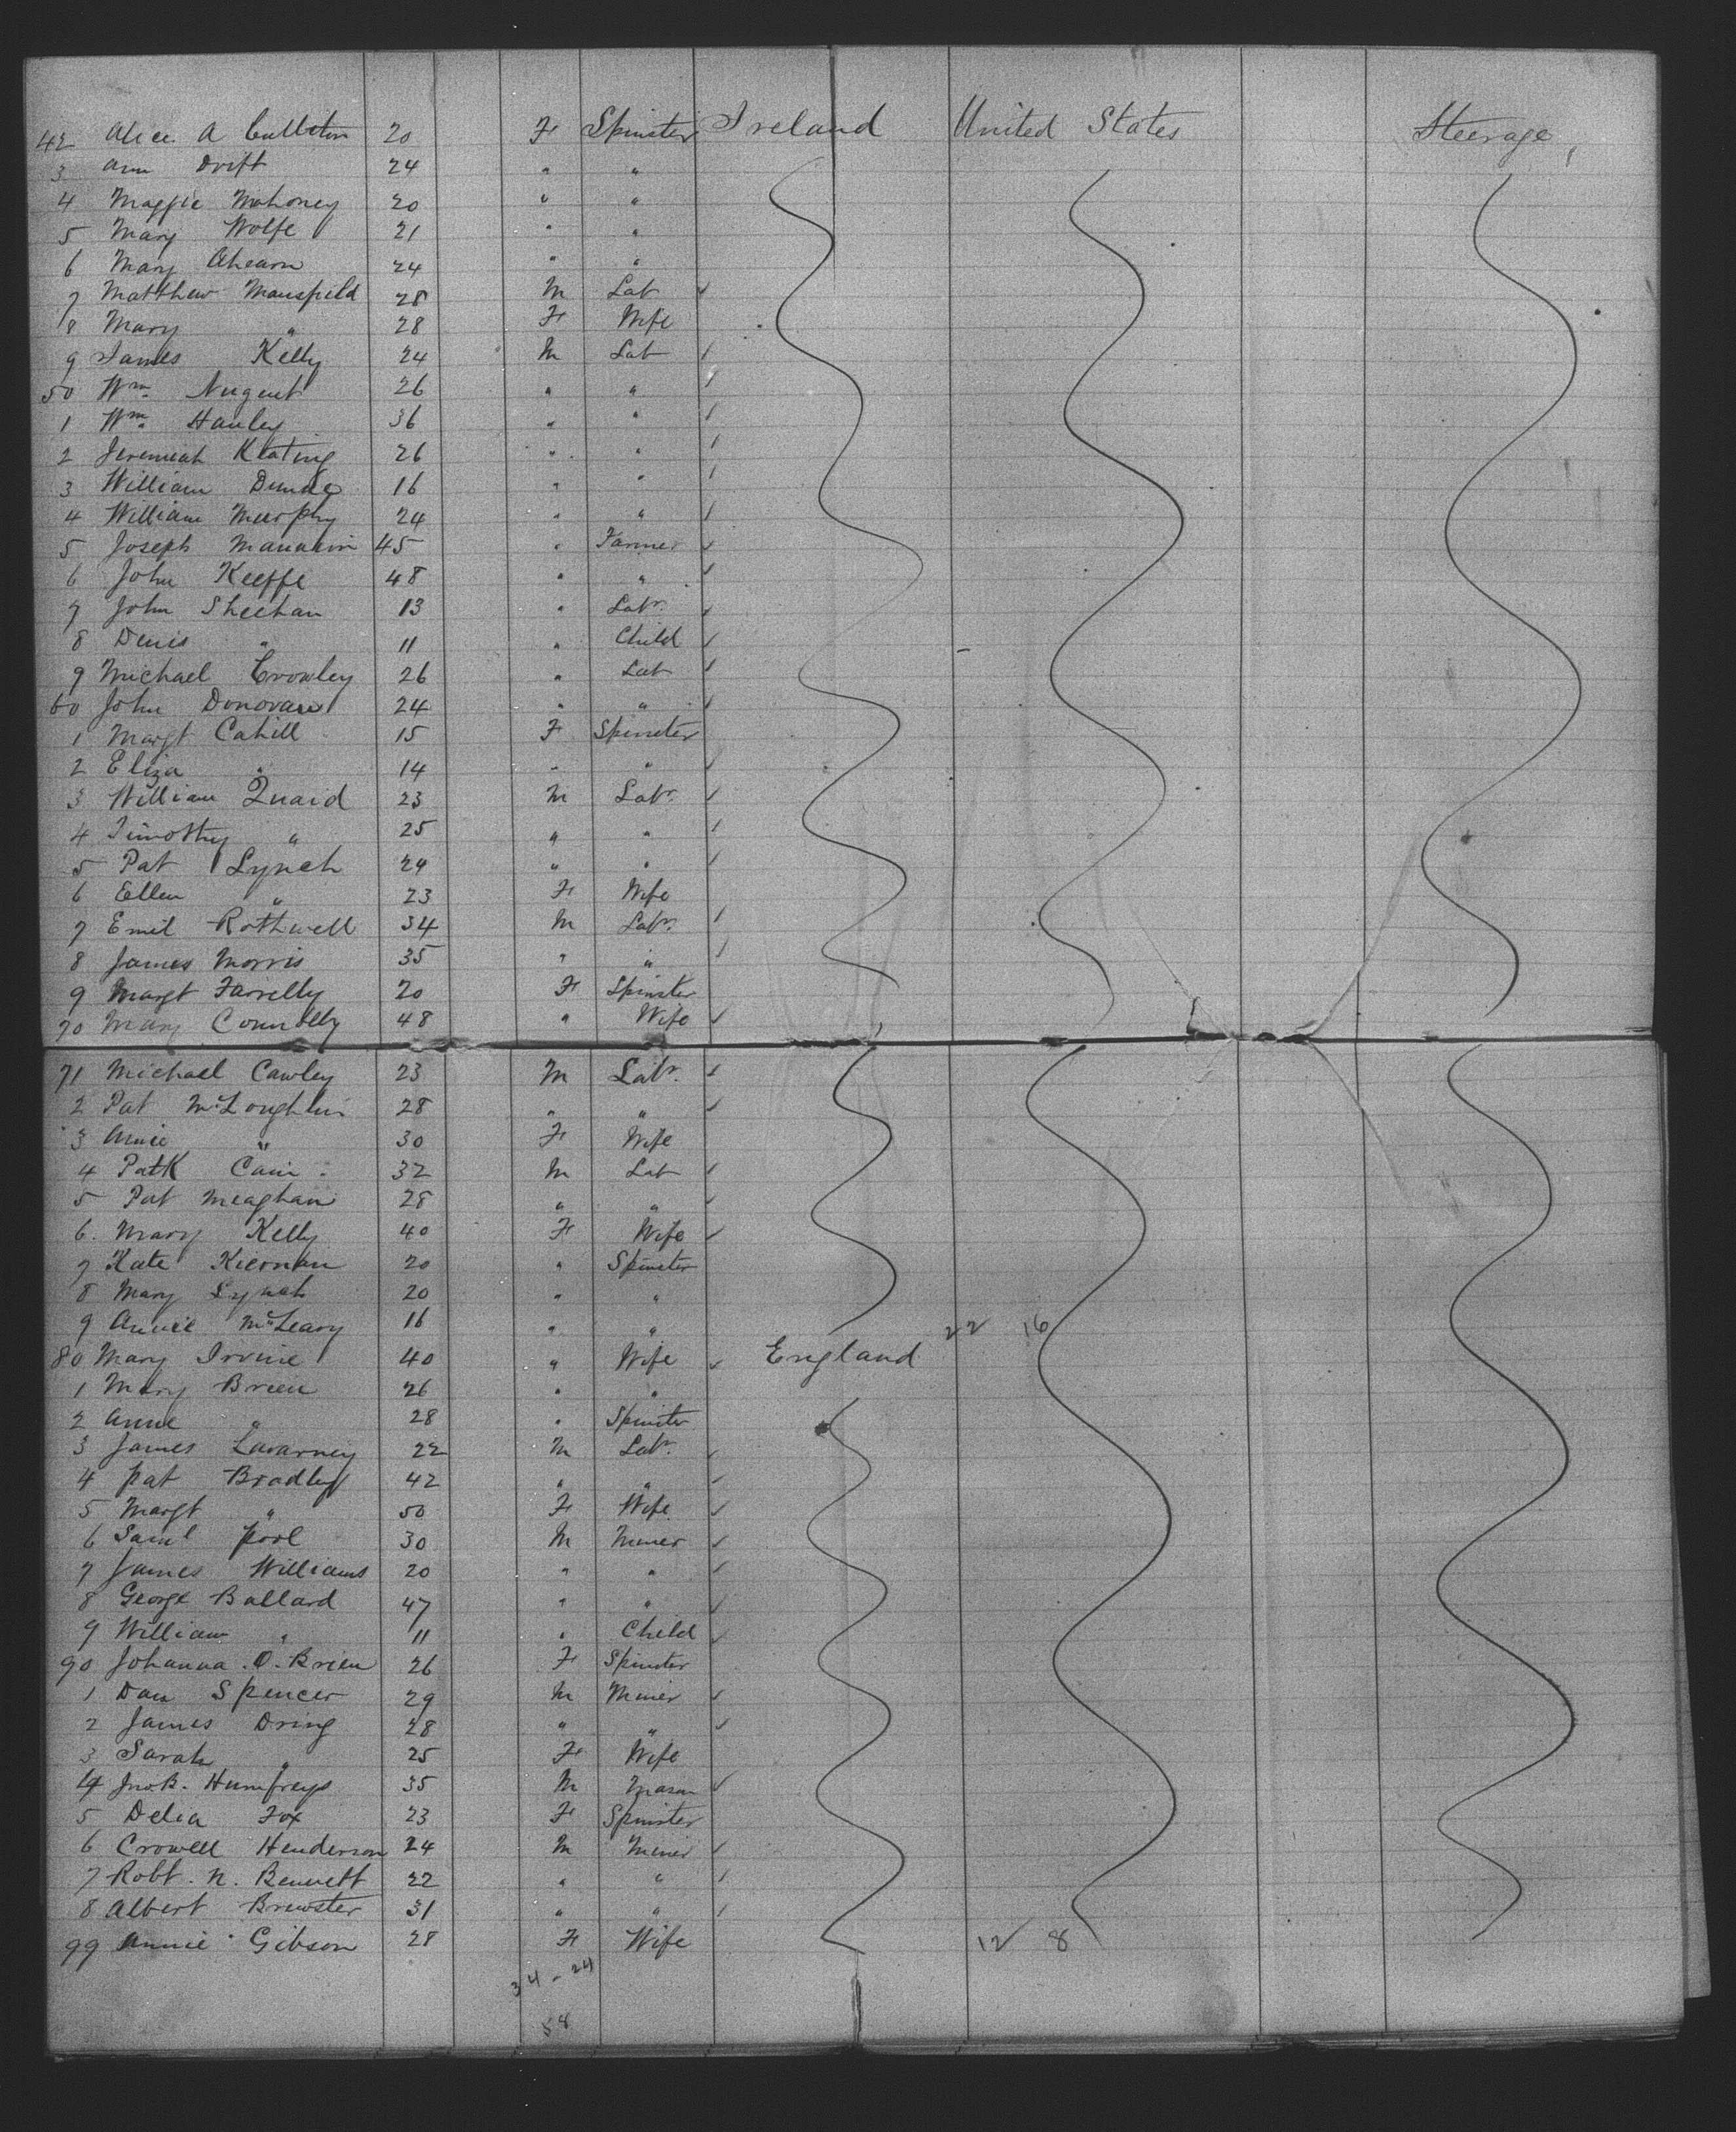 42 Alice A Culliton 20 F Spinster Ireland United States Steerage
3 Ann Drift 24 " "
4 Maggie Mahoney 20 " "
5 Mary Wolfe 21 " "
6 Mary Ahearn 24 " "
7 Matthew Mansfield 28 M Lab ✓
8 Mary " 28 F Wife
9 James Kelly 24 M Lab
50 Wm. Nugent 26 " "
1 Wm. Hanley 36 " "
2 Jeremiah Keating 26 " "
3 William 16 " "
4 William Murphy 24 " "
5 Joseph 45 " Farmer ✓
6 John Keeffe 48 " "
7 John Sheehan 13 " Labr.
8 Denis " 11 " Child
9 Michael Crowley 26 " Lab
60 John Donovan 24 " "
1 Margt Cahill 15 F Spinster
2 Eliza " 14 " "
3 William Quaid 23 M Labr.
4 Timothy " 25 " "
5 Pat Lynch 24 " "
6 Ellen " 23 F Wife
7 Emil Rothwell 34 M Labr.
8 James Morris 35 " "
9 Margt Farrelly 20 F Spinster
70 Mary Connolly 48 " Wife ✓
71 Michael Cawley 23 M Labr. ✓
2 Pat McLoughlin 28 " " ✓
3 Annie " 30 F Wife
4 Patk Cain 32 M Lab
5 Pat Meaghan 28 " " ✓
6 Mary Kelly 40 F Wife ✓
7 Kate Kiernan 20 " Spinster
8 Mary Lynch 20 " "
9 Annie McLeary 16 " " 22 16
80 Mary Irvine 40 " Wife ✓ England
1 Mary Brien 26 " "
2 Anne " 28 " Spinster
3 James Lavarney 22 M Labr. ✓
4 Pat Bradley 42 " " ✓
5 Margt " 50 F Wife ✓
6 Saml Pool 30 M Miner ✓
7 James Williams 20 " " ✓
8 George Ballard 47 " " ✓
9 William " 11 " Child ✓
90 Johanna O.Brien 26 F Spinster
1 Dan Spencer 29 M Miner ✓
2 James Dring 28 " " ✓
3 Sarah " 25 F Wife
4 Humfreys 35 M Mason ✓
5 Delia Fox 23 F Spinster
6 Crowell Henderson 24 M Miner
7 Robt. N. Bennett 22 " "
8 Albert Brewster 31 " "
99 Annie Gibson 28 F Wife 12 8
34 - 24
58